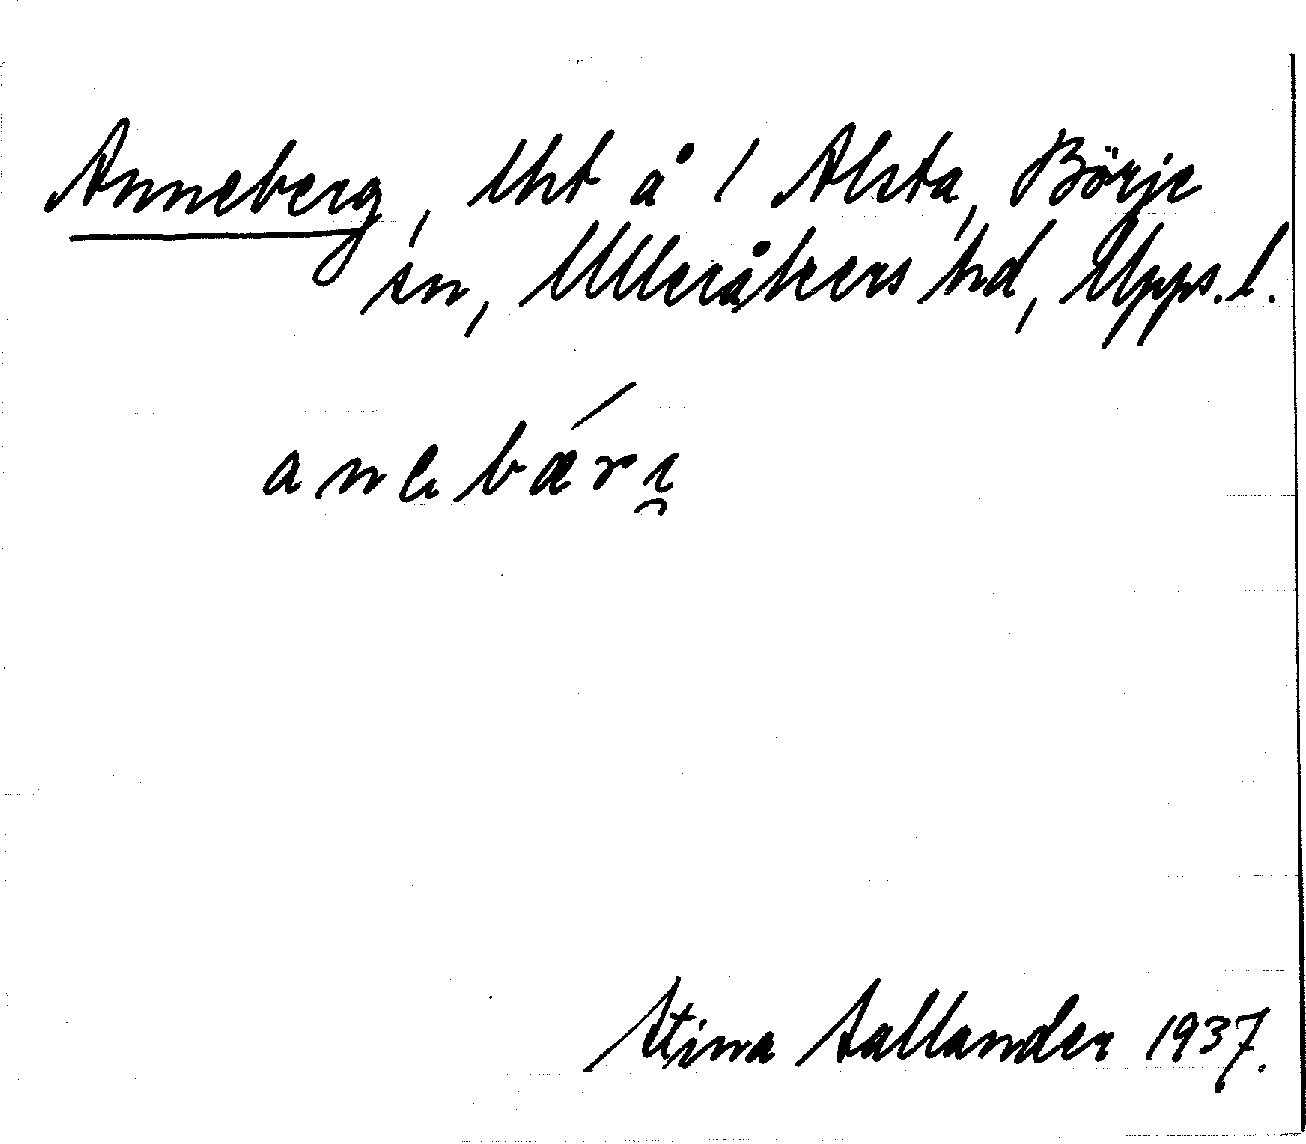 Anneberg, lht å 1 Alsta, Börje
sn, Ulleråkers hd, Upps. l.
anebǽri̯
Stina Sallander 1937.